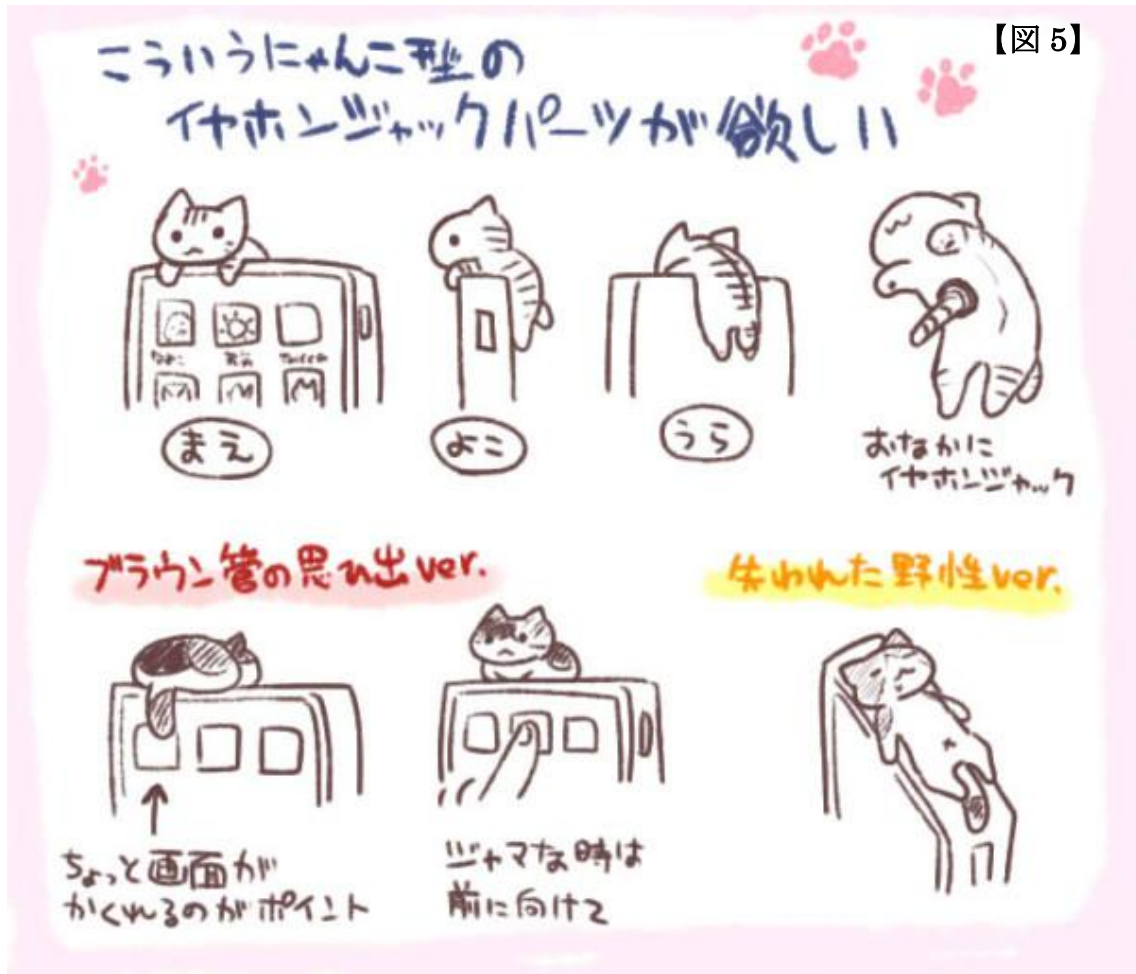 【図 5】
こういうにゃんこ型の
イヤホンジャックパーツが欲しい
まえ
よこ
うら
おなかに
イヤホンジャック
ブラウン管の思ひ出ver.
失われた野性ver.
ちょっと画面が
かくれるのがポイント
ジャマな時は
前に向けて